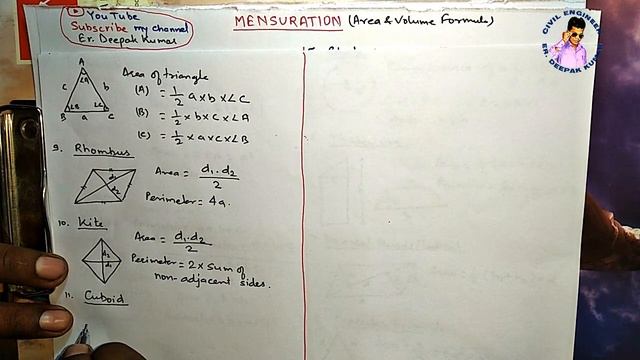 YouTube
Subscribe my channel
Er. Deepak Kumar
MENSURATION (Area & Volume Formula)
CIVIL ENGINEER
ER. DEEPAK KUMAR
A
∠A
c
b
∠B
∠C
B
a
C
Area of triangle
(A) = 1/2 a×b×∠C
(B) = 1/2 × b×c×∠A
(C) = 1/2 × a×c×∠B
9. Rhombus
d1
d2
Area = d1.d2/2
Perimeter = 4a.
10. Kite
d2
d1
Area = d1.d2/2
Perimeter = 2 × sum of
non-adjacent sides.
11. Cuboid